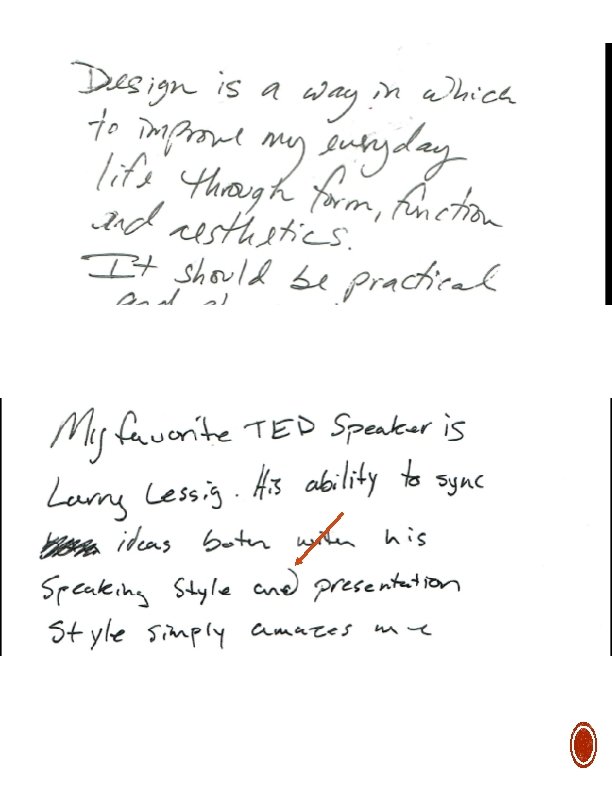 Design is a way in which
to improve my everyday
life through form, function
and aesthetics.
It should be practical
and
My favorite TED Speaker is
Larry Lessig. His ability to sync
ideas both with his
Speaking Style and presentation
Style simply amazes me